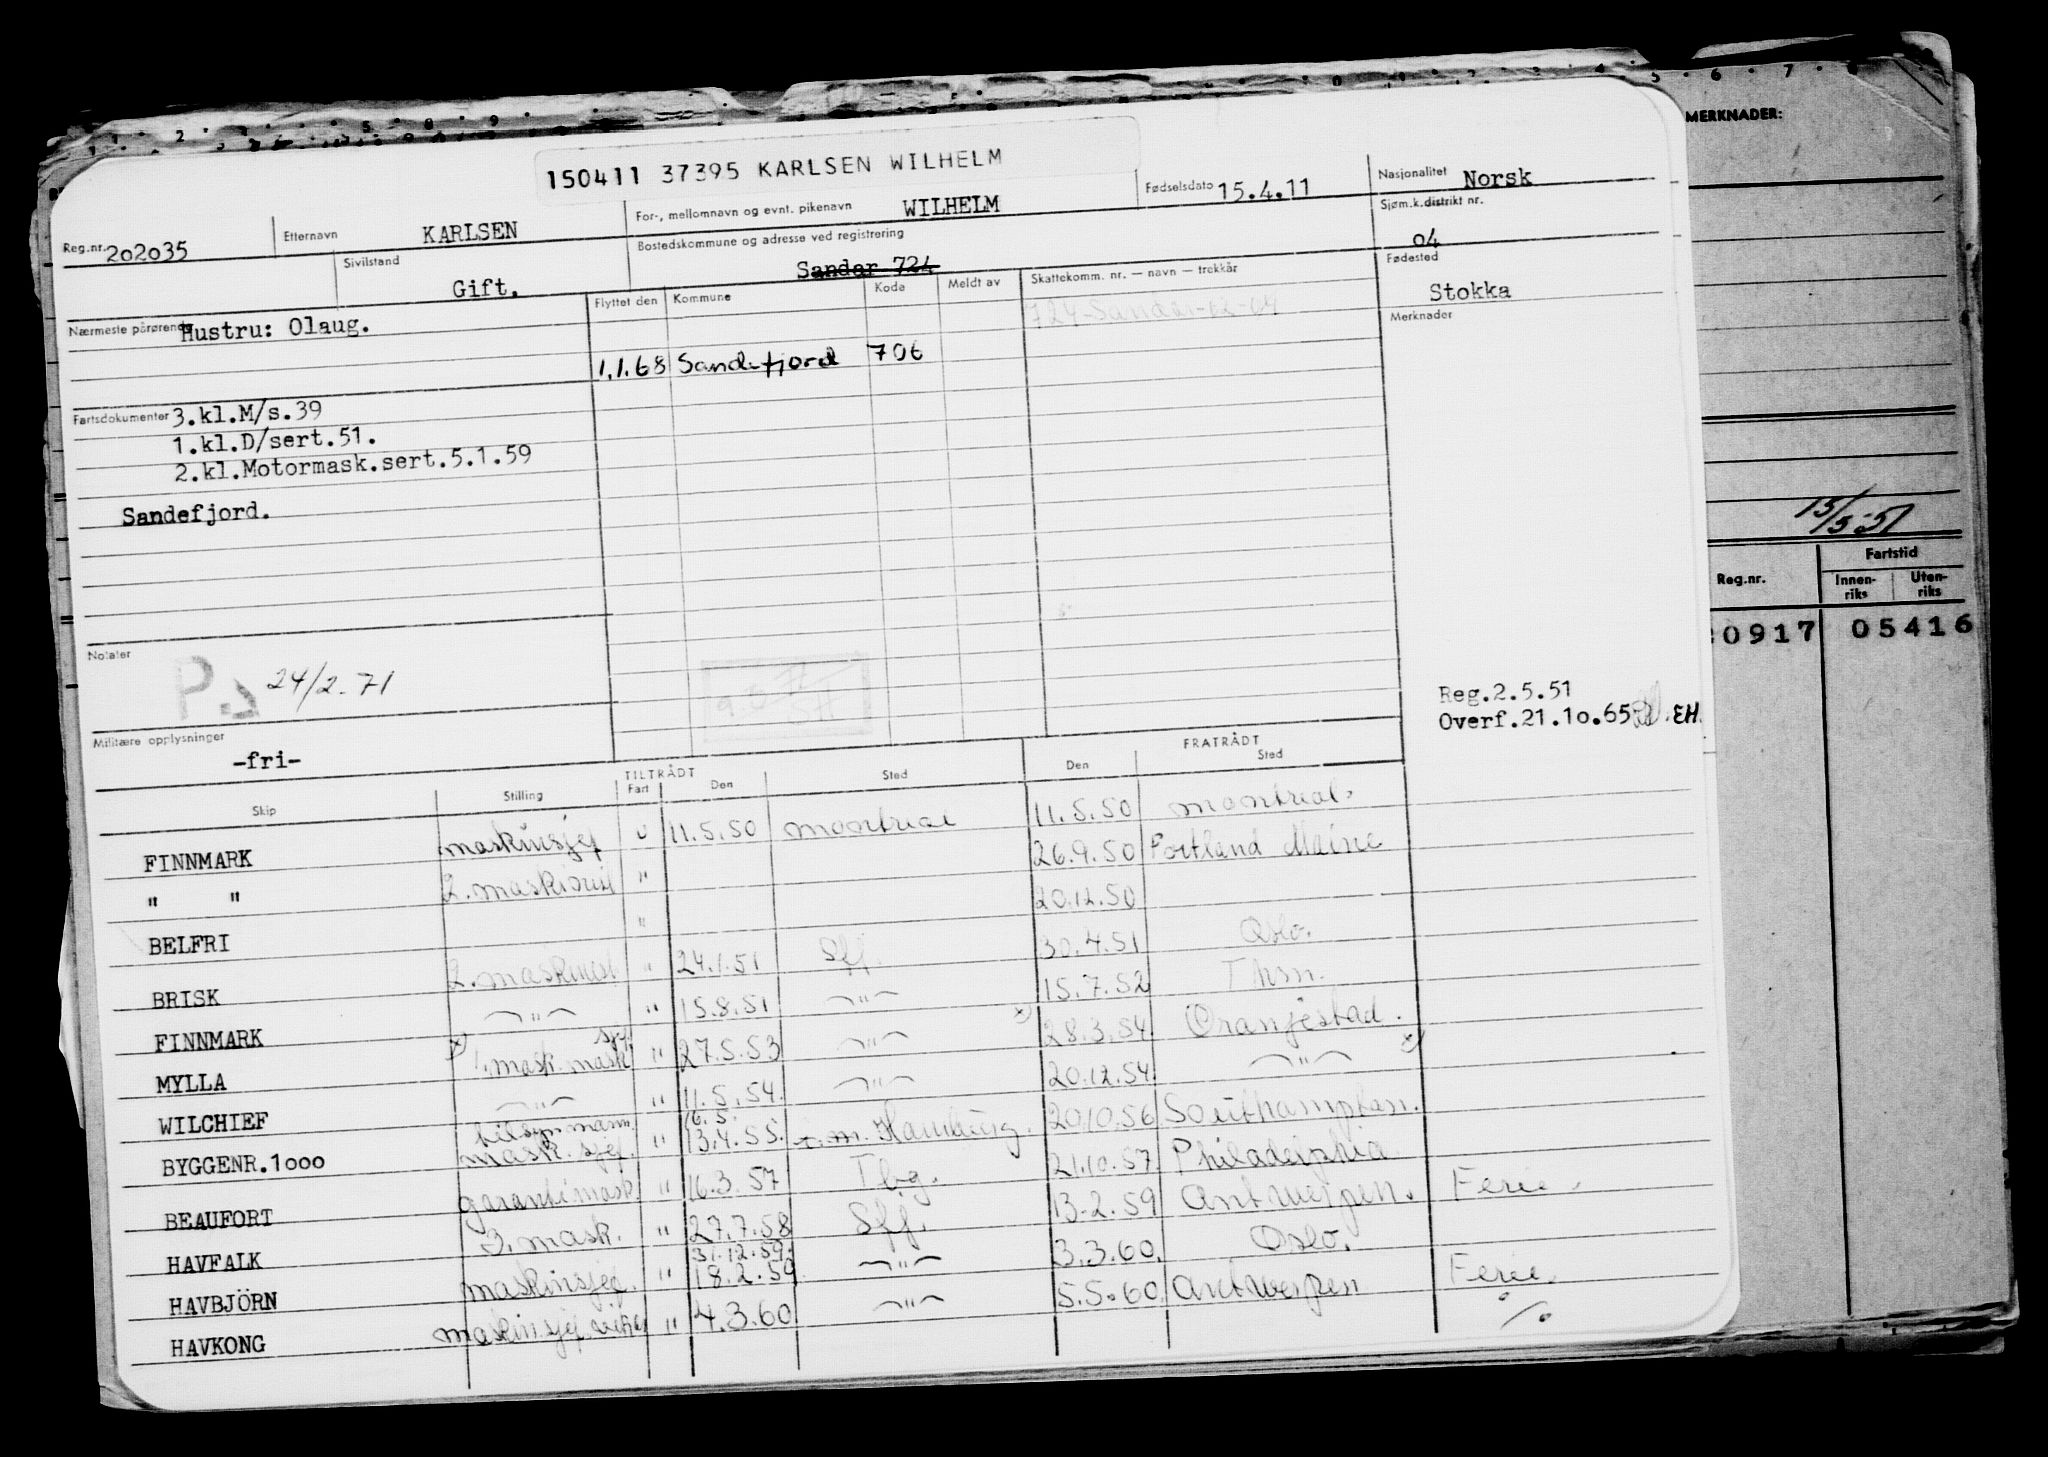 MERKNADER:
150411 37395 KARLSEN WILHELM
Reg.nr. 202035 Etternavn KARLSEN For-, mellomnavn og evnt. pikenavn WILHELM Fødselsdato 15.4.11 Nasjonalitet Norsk
Sivilstand Gift. Bostedskommune og adresse ved registrering Sandar 724 Sjøm.k.distrikt nr. 04
Nærmeste pårørende Hustru: Olaug. Flyttet den Kommune Kode Meldt av Skattekomm. nr. — navn — trekkår Fødested Stokka
724-Sandar-12-04 Merknader
1.1.68 Sandefjord 706
Fartsdokumenter 3.kl.M/s.39
1.kl.D/sert.51.
2.kl.Motormask.sert.5.1.59
Sandefjord.
15/5-51
Reg.nr. Fartstid
Innen-riks Uten-riks
0917 05416
Notater
24/2.71
Reg.2.5.51
Overf.21.1o.65 EH.
Militære opplysninger -fri-
TILTRÅDT FRATRÅDT
Skip Stilling Fart Den Sted Den Sted
FINNMARK maskinsjef U 11.5.50 montreal 11.5.50 montreal.
" " 2. maskinist " 26.9.50 Portland Maine
BELFRI " 20.12.50
BRISK 2. maskinist " 24.1.51 Sfj. 30.4.51 Oslo.
FINNMARK —"— " 15.8.51 —"— 15.7.52 Thsn.
MYLLA x) 1. mask. mask sjf. " 27.5.53 —"— x) 28.3.54. Oranjestad.
WILCHIEF —"— " 11.5.54. —"— 20.12.54. —"— x)
BYGGENR.1000 tilsynmann. mask. sjef. " 16.5. 13.4.55. Hamburg. 20.10.56 Southampton.
BEAUFORT garantimask. " 16.3.57 Tbg. 21.10.57 Philadelphia
HAVFALK 3. mask. " 27.7.58 Sfj. 13.2.59 Antwerpen. Ferie.
HAVBJÖRN maskinsjef. " 31.12.59. 18.2.59 —"— 3.3.60. Oslo.
HAVKONG maskinsjef vikar " 4.3.60 —"— 5.5.60 Antwerpen Ferie.
./.